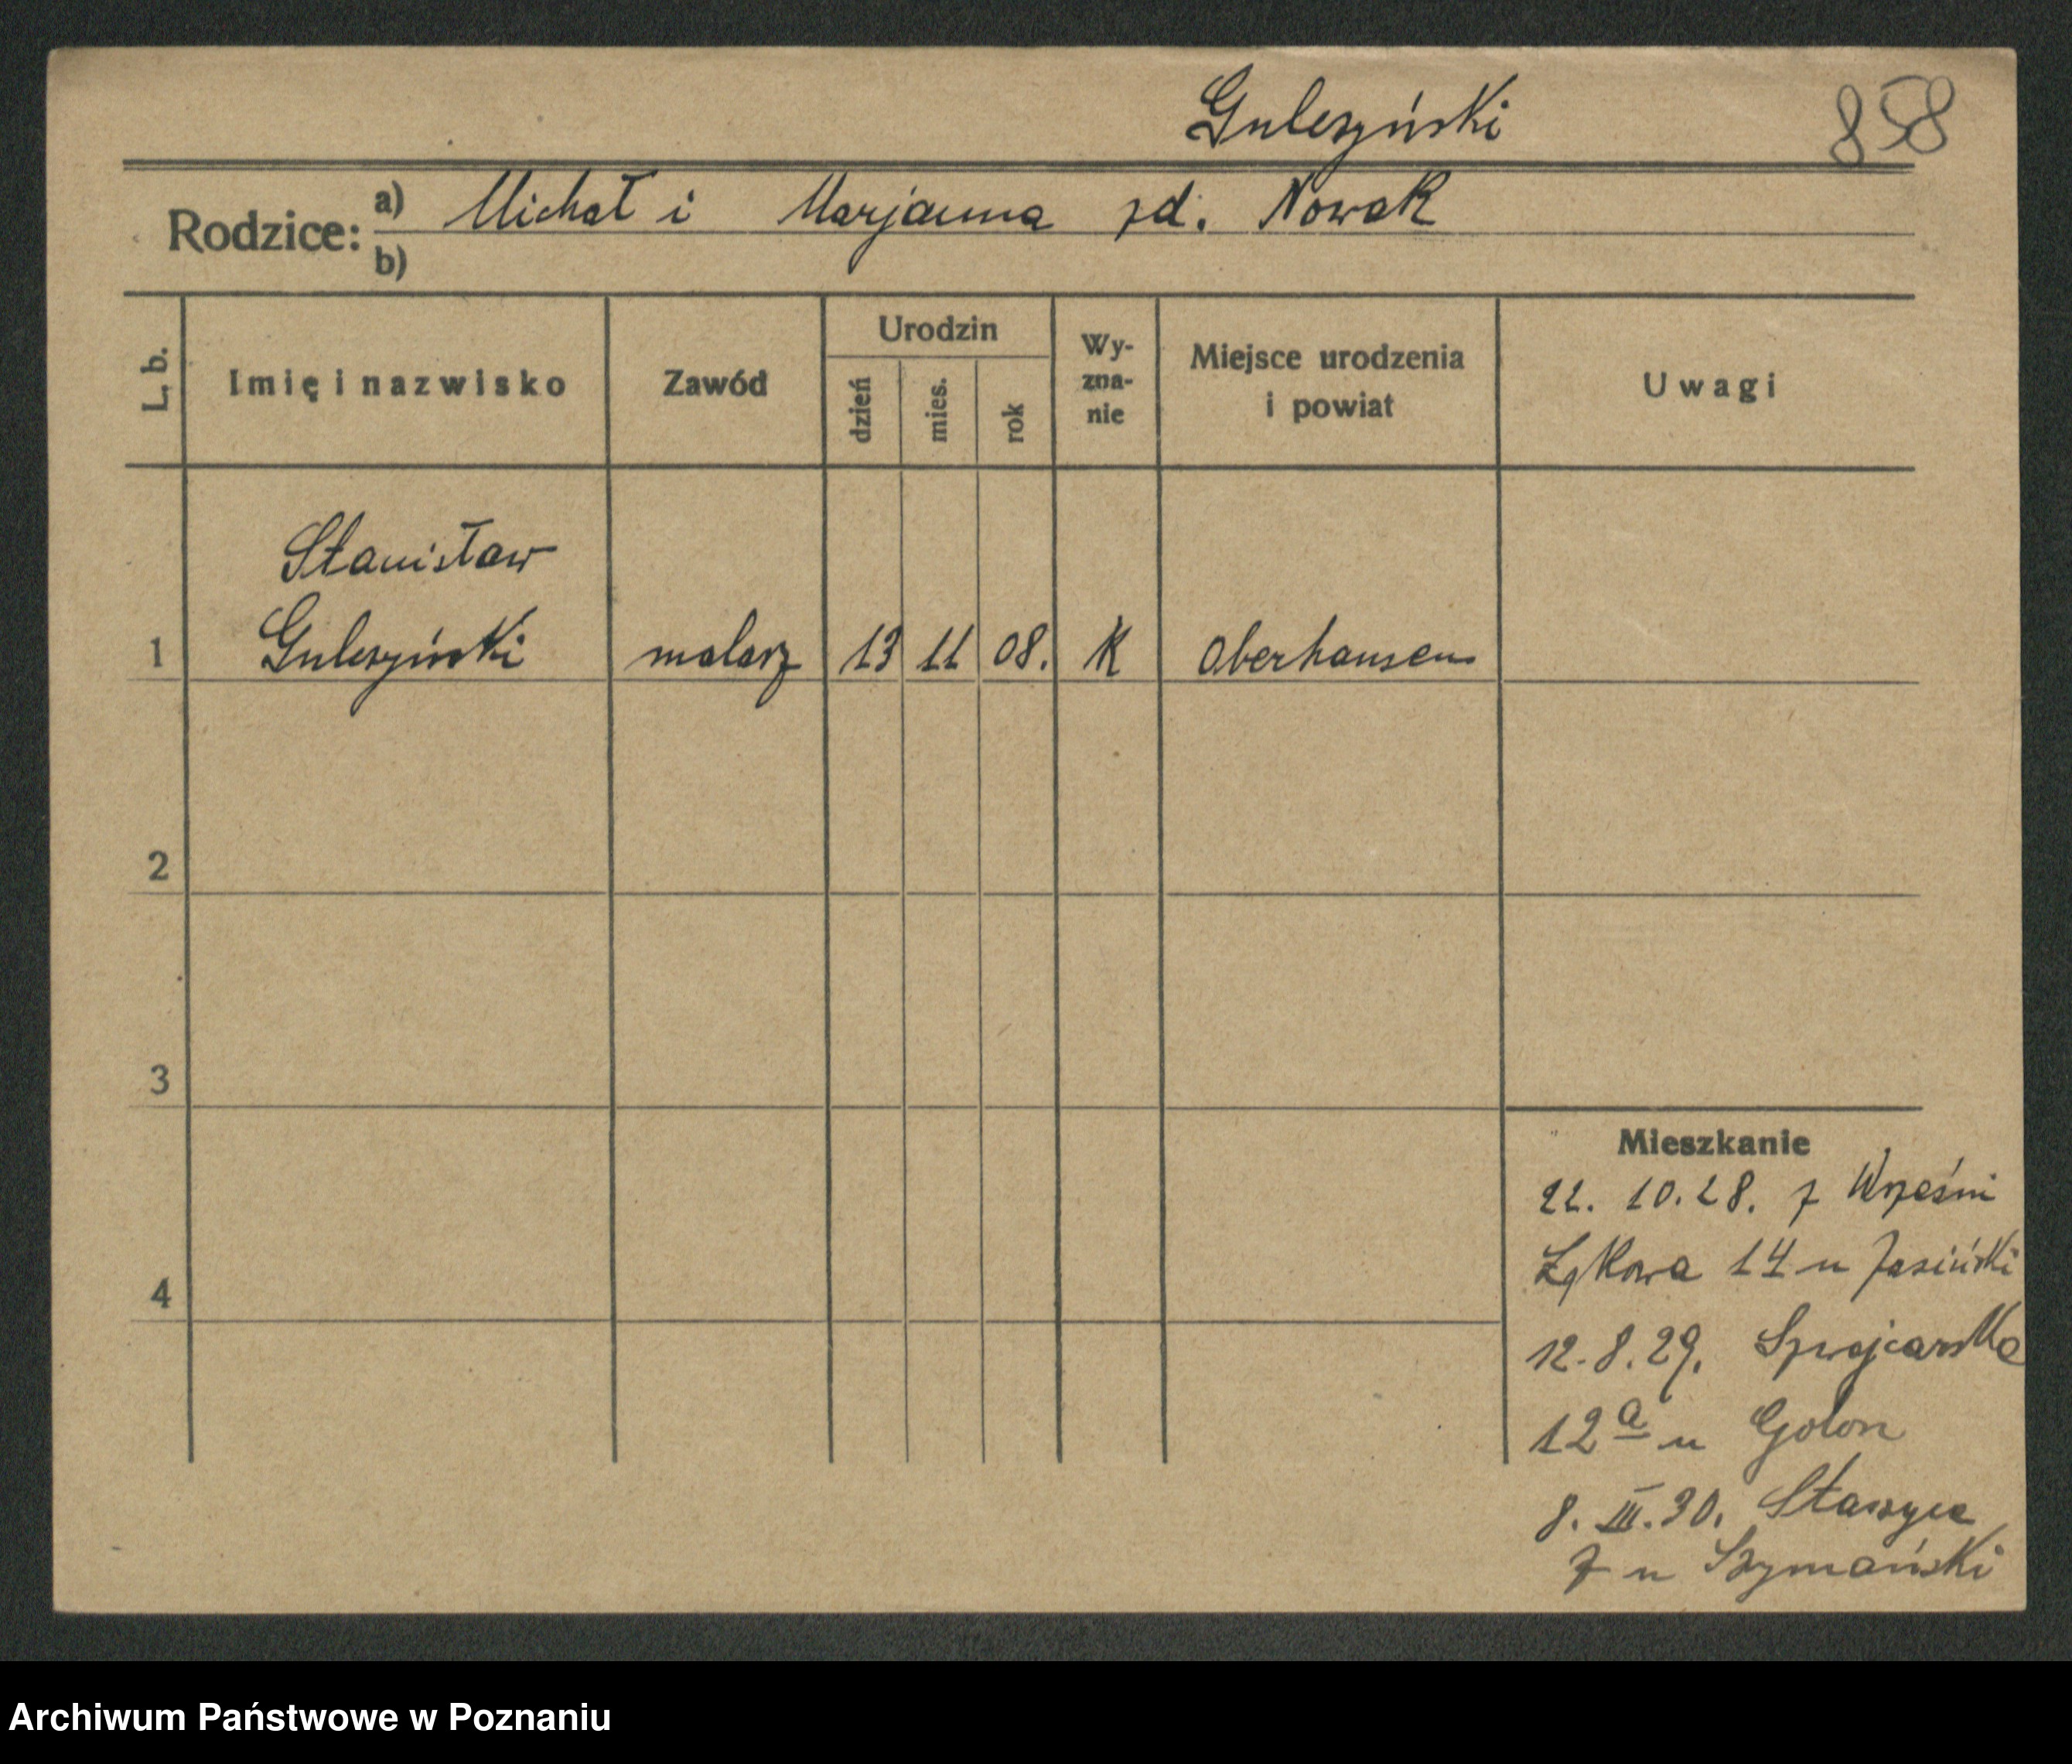 Guleszyński
858
Rodzice: a) Michał i Marjanna zd. Nowak
b)
L. b.
Imię i nazwisko
Zawód
Urodzin
dzień
mies.
rok
Wy-
zna-
nie
Miejsce urodzenia
i powiat
Uwagi
Stanisław
1 Guleszyński malarz 13 11 08. K Oberhausen
2
3
4
Mieszkanie
22. 10. 28. z Wrześni
Łąkowa 14 u Jasiński
12. 8. 29. Szwajcarska
12a u Golon
8. III. 30. Staszyca
7 u Szymański
Archiwum Państwowe w Poznaniu